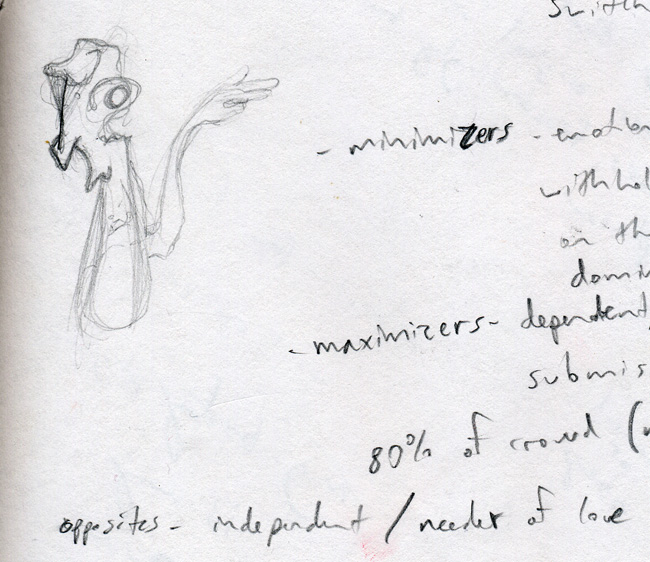 - minimizers - emotion
withhol
on th
domin
- maximizers - dependent,
submis
80% of crowd (
opposites - independent / needer of love